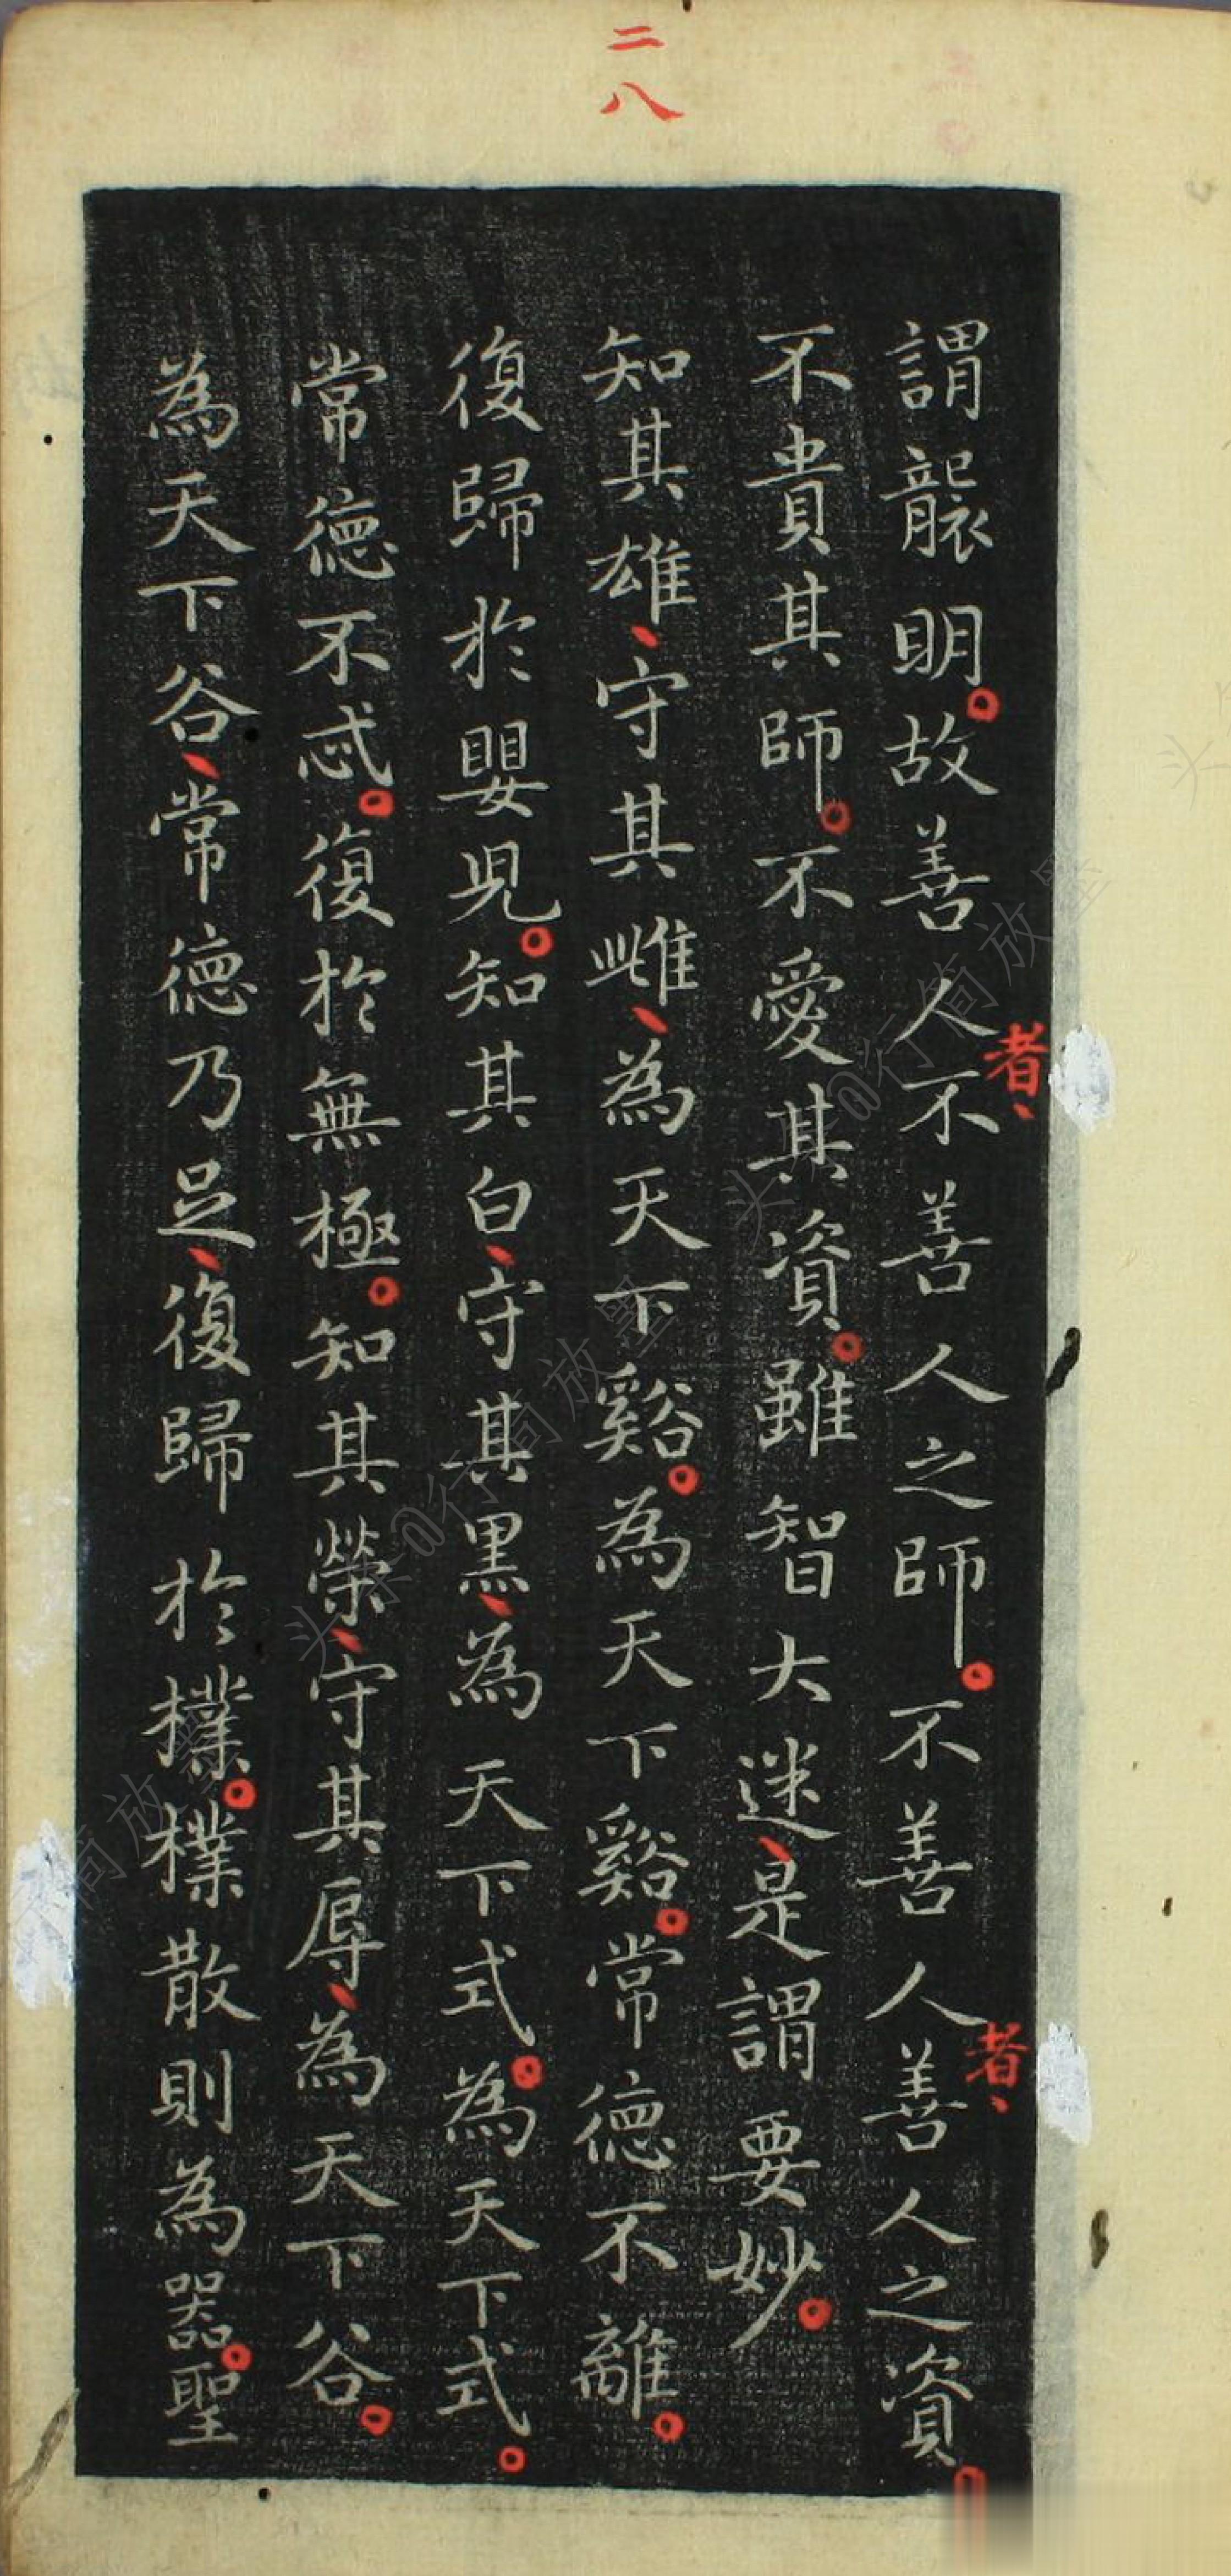 二八
謂襲明。故善人者、不善人之師。不善人者、善人之資
不貴其師。不愛其資。雖智大迷、是謂要妙。
知其雄、守其雌、為天下谿。為天下谿。常德不離。
復歸於嬰兒。知其白、守其黑、為天下式。為天下式。
常德不忒。復於無極。知其榮、守其辱、為天下谷。
為天下谷、常德乃足、復歸於樸。樸散則為器。聖
头条@行简放墨
头条@行简放墨